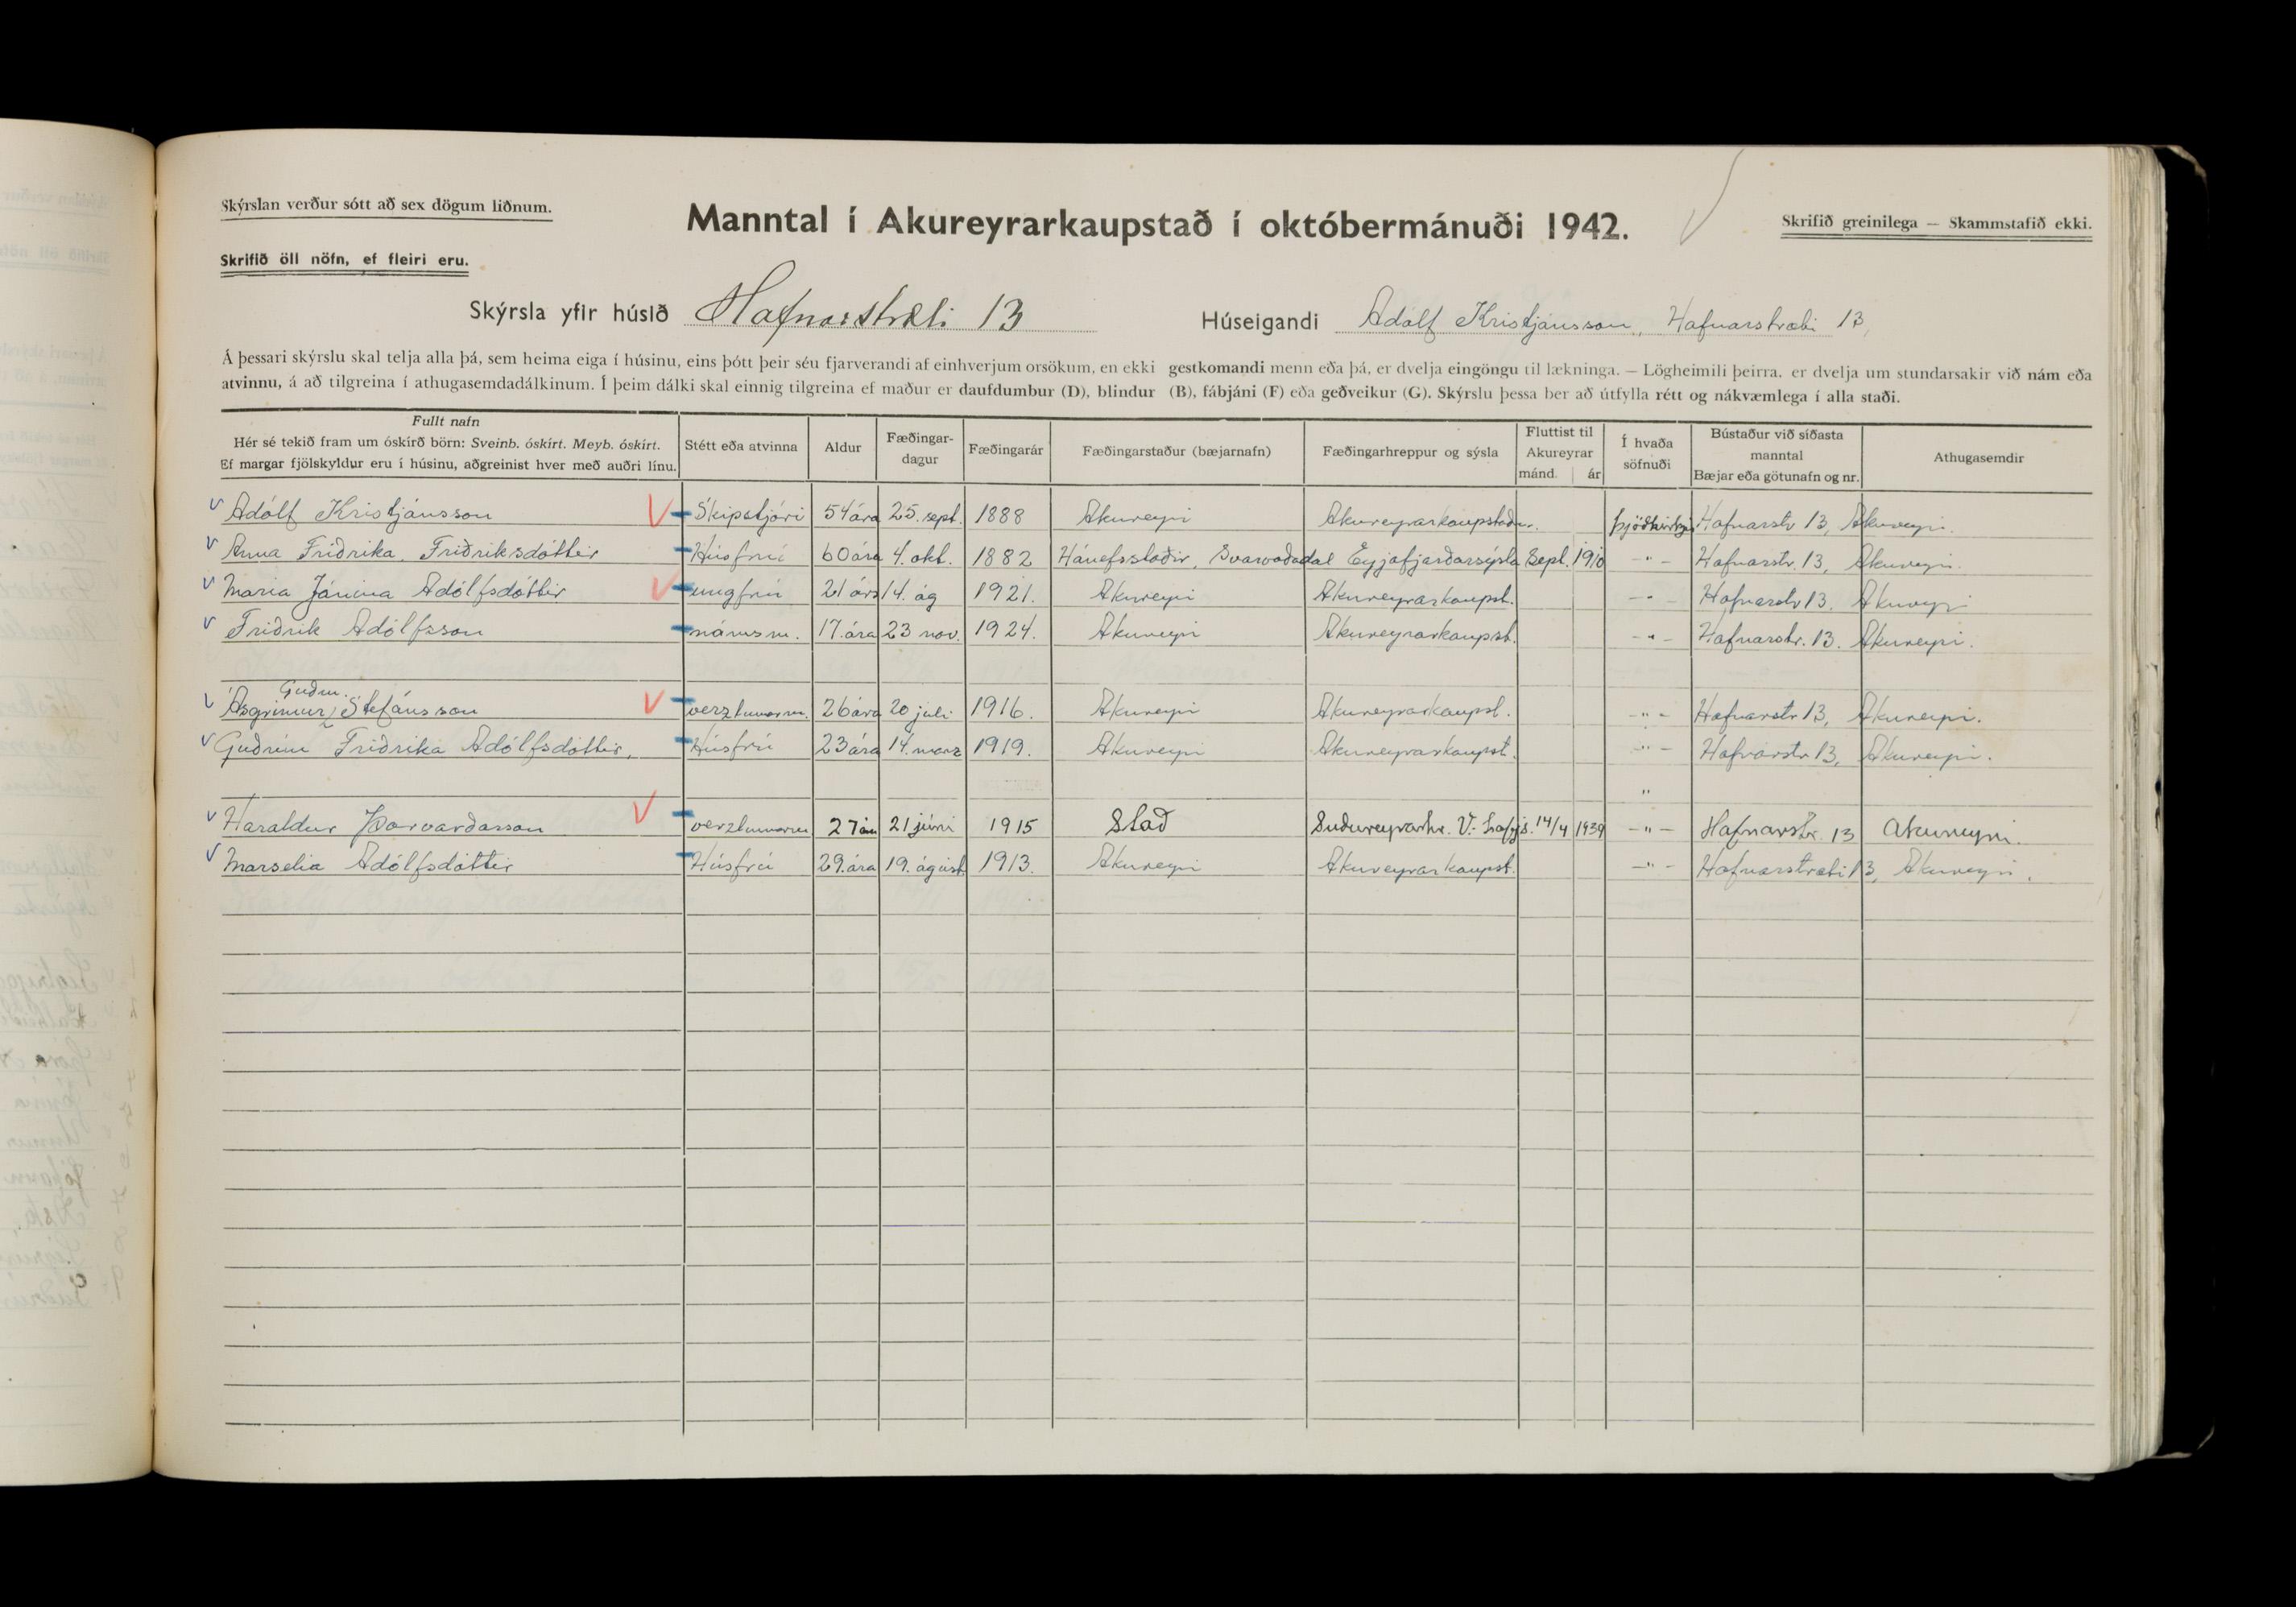 Skýrslan verður sótt að sex dögum liðnum.
Manntal í Akureyrarkaupstað í októbermánuði 1942.
Skrifið greinilega — Skammstafið ekki.
Skrifið öll nöfn, ef fleiri eru.
Skýrsla yfir húsið Hafnarstræti 13 Húseigandi Adólf Kristjánsson, Hafnarstræti 13,
Á þessari skýrslu skal telja alla þá, sem heima eiga í húsinu, eins þótt þeir séu fjarverandi af einhverjum orsökum, en ekki gestkomandi menn eða þá, er dvelja eingöngu til lækninga. — Lögheimili þeirra. er dvelja um stundarsakir við nám eða
atvinnu, á að tilgreina í athugasemdadálkinum. Í þeim dálki skal einnig tilgreina ef maður er daufdumbur (D), blindur (B), fábjáni (F) eða geðveikur (G). Skýrslu þessa ber að útfylla rétt og nákvæmlega í alla staði.
Fullt nafn
Hér sé tekið fram um óskírð börn: Sveinb. óskírt. Meyb. óskírt.
Ef margar fjölskyldur eru í húsinu, aðgreinist hver með auðri línu.
Stétt eða atvinna
Aldur
Fæðingar-
dagur
Fæðingarár
Fæðingarstaður (bæjarnafn)
Fæðingarhreppur og sýsla
Fluttist til
Akureyrar
mánd. ár
Í hvaða
söfnuði
Bústaður við síðasta
manntal
Bæjar eða götunafn og nr.
Athugasemdir
Adólf Kristjánsson Skipstjóri 54 ára 25. sept. 1888 Akureyri Akureyrarkaupstaður. þjóðkirkju Hafnarstr 13, Akureyri.
Anna Friðrika Friðriksdóttir Húsfrú 60 ára 4. okt. 1882 Hánefsstaðir, Svarvaðadal Eyjafjarðarsýsla Sept. 1910 -"- Hafnarstr. 13, Akureyri.
Maria Jánina Adólfsdóttir ungfrú 21 árs 14. ág 1921. Akureyri Akureyrarkaupst. -"- Hafnarstr 13. Akureyri
Friðrik Adólfsson námsm. 17. ára 23 nov. 1924. Akureyri Akureyrarkaupst. -"- Hafnarstr. 13. Akureyri.
Guðm.
Ásgrimur Stefánsson verzlunarm. 26 ára 20 juli 1916. Akureyri Akureyrarkaupst. -"- Hafnarstr 13, Akureyri.
Guðrún Friðrika Adólfsdóttir, Húsfrú 23 ára 14. marz 1919. Akureyri Akureyrarkaupst. -"- Hafnarstr 13, Akureyri.
"
Haraldur Þorvarðarson verzlunarm 27 ára 21 júni 1915 Stað Suðureyrarhr. V.-Ísafjs. 14/4 1939 -"- Hafnarstr. 13 Akureyri.
Marselia Adólfsdóttir Húsfrú 29. ára 19. ágúst 1913. Akureyri Akureyrarkaupst. -"- Hafnarstræti 13, Akureyri.